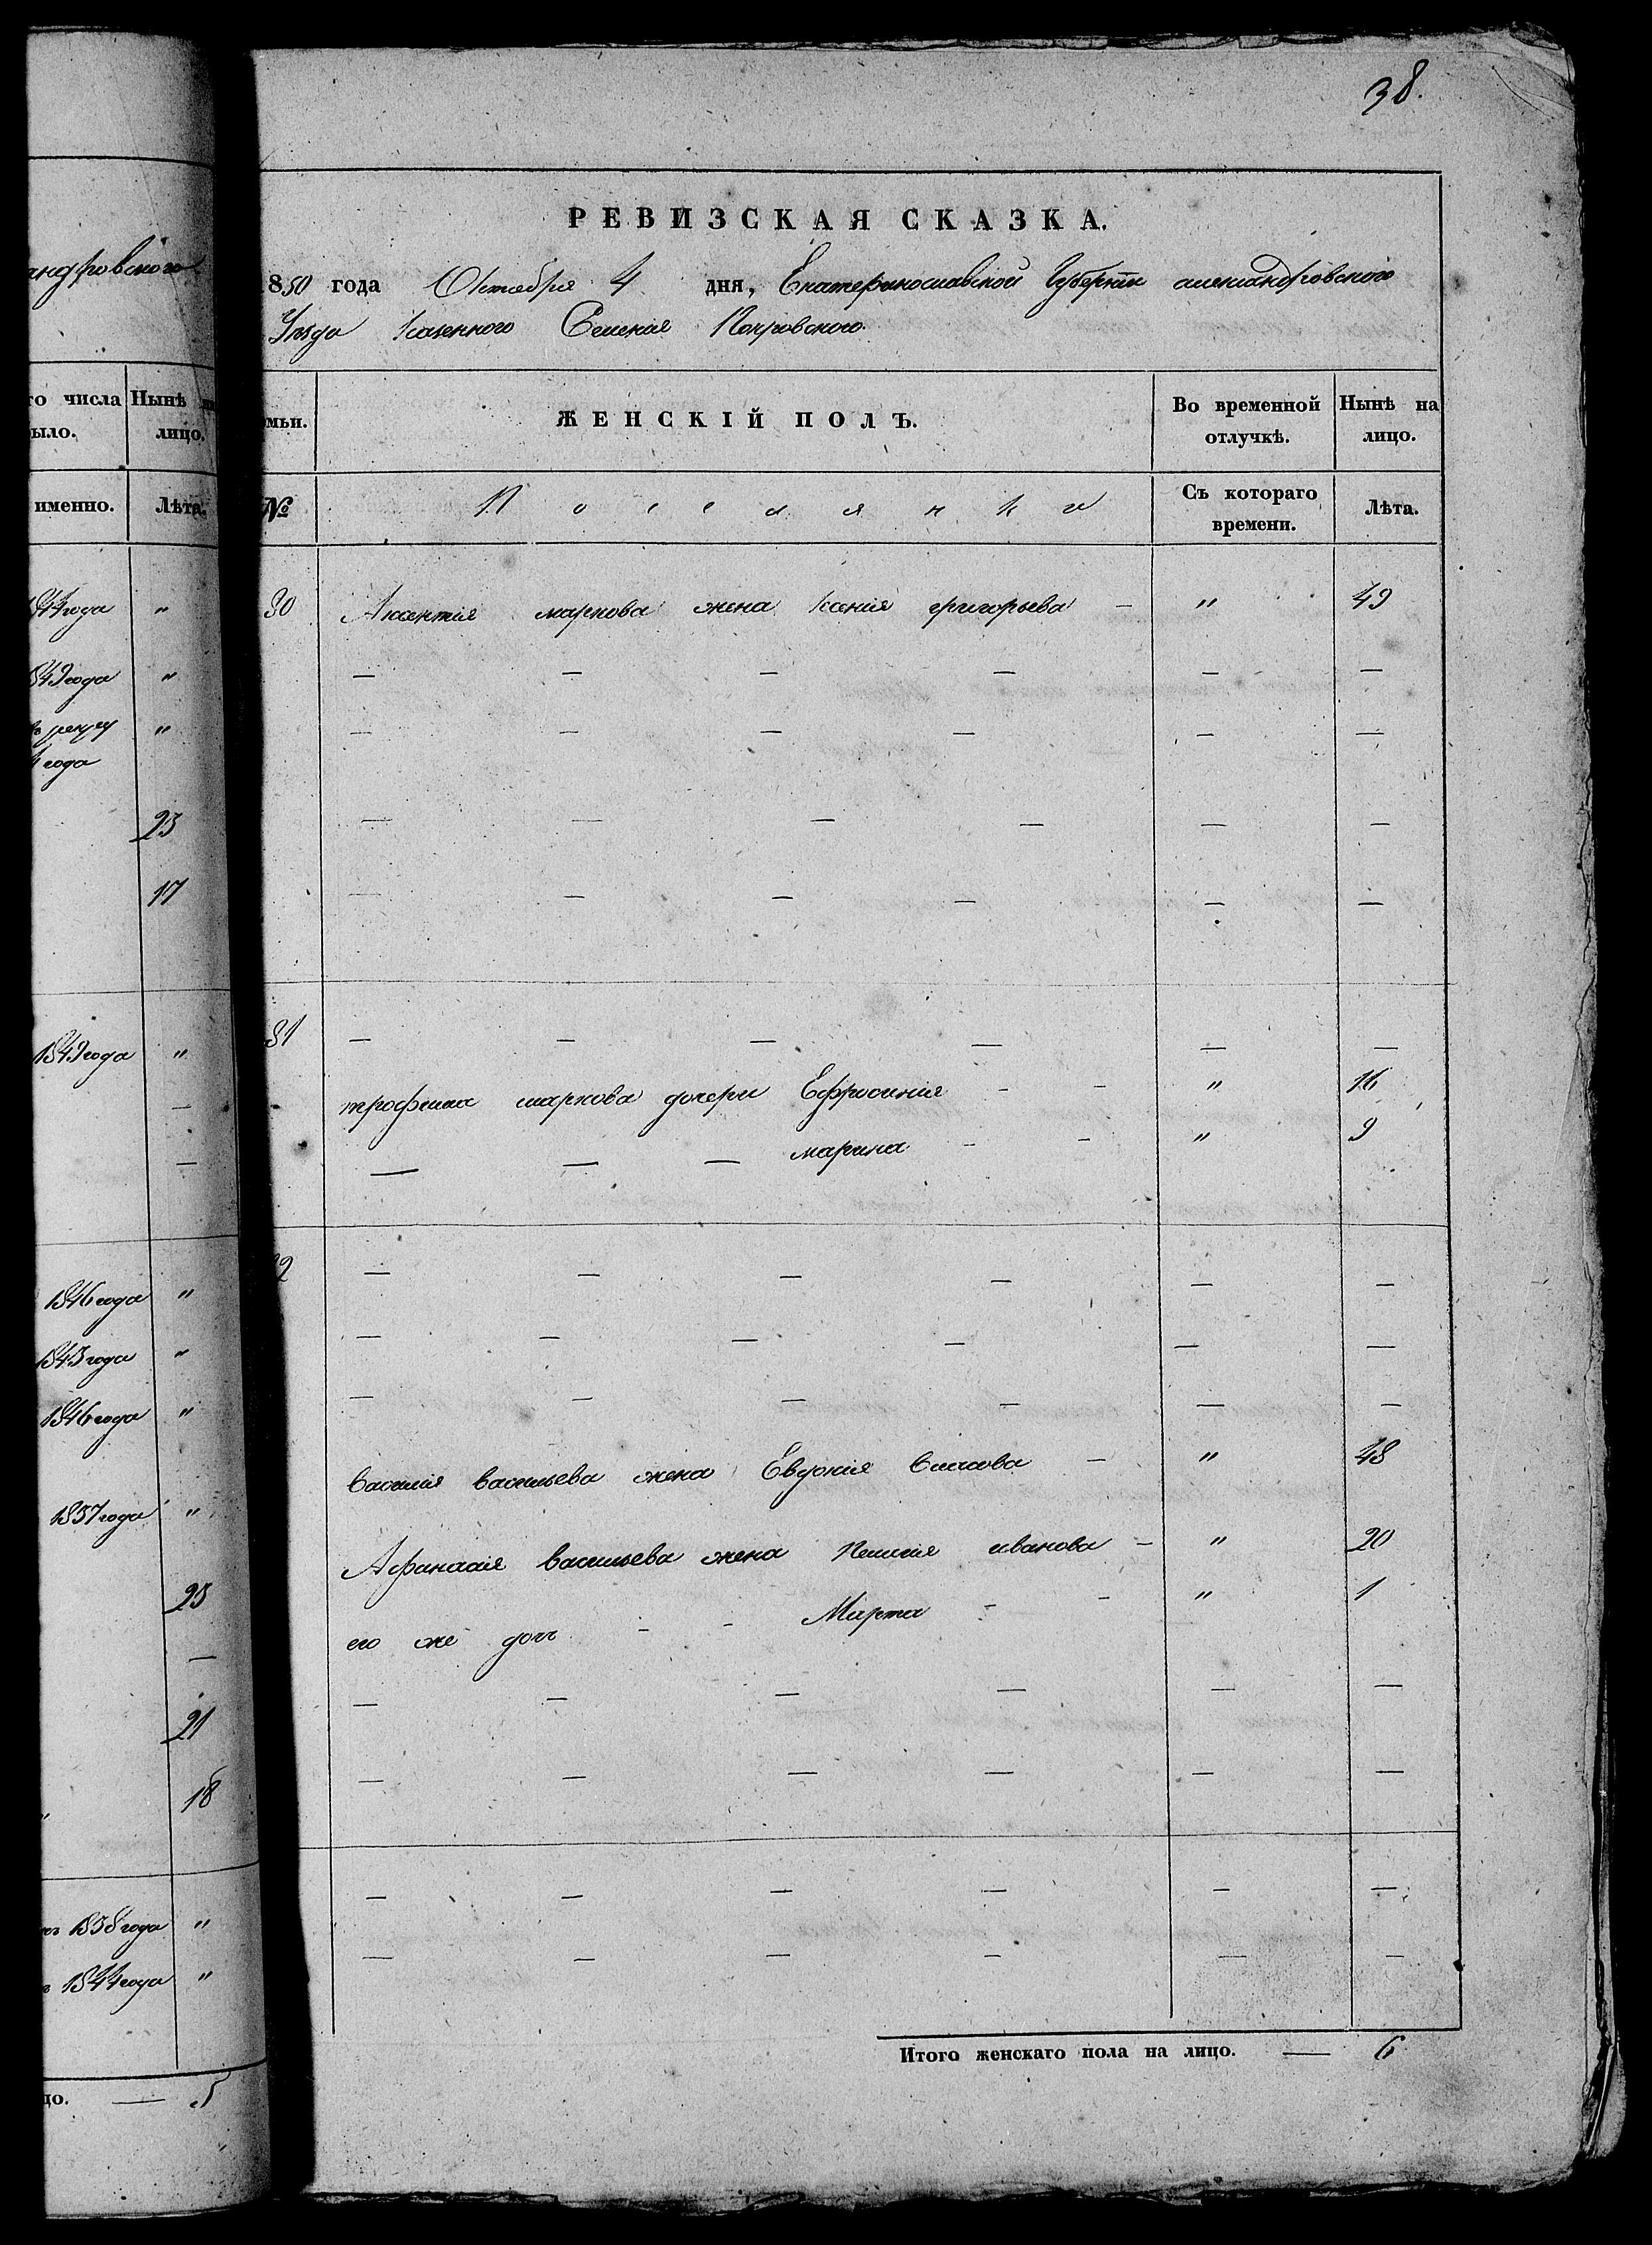 38.
андровского
го числа
Нынѣ
ыло.
лицо.
именно.
Лѣта.
1844 года "
1849 года "
"
года
23
17
1849 года "
—
—
1846 года "
1843 года "
1846 года "
1837 года "
23
—
21
18
1838 года "
1844 года "
цо. — 5
РЕВИЗСКАЯ СКАЗКА.
850 года Октября 4 дня, Екатеринославской Губернiи александровского
Уѣзда Казенного Селенiя Покровского.
мьи.
ЖЕНСКІЙ ПОЛЪ.
Во временной отлучкѣ.
Нынѣ на лицо.
№
Поселянки
Съ котораго времени.
Лѣта.
30 Аксентiя маркова жена Ксенiя григорьева — " 49
— — — — — —
— — — — — —
— — — — — —
— — — — — —
31 — — — — — —
трофима маркова дочери Ефросинiя - - " 16
— — — марина - - " 9
2 — — — — — —
— — — — — —
— — — — — —
Василiя васильева жена Евдокiя Власова — " 48
Афанасiя васильева жена Пелагiя иванова — " 20
его же дочь - - Марта - - " 1
— — — — — —
— — — — — —
— — — — — —
— — — — — —
Итого женскаго пола на лицо. — 6